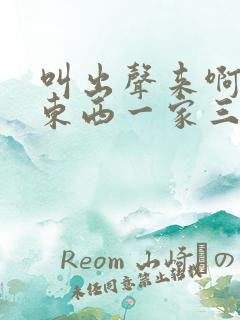 叫出聲来啊
東西一家三
Reom 山崎の
未任同意禁止转载